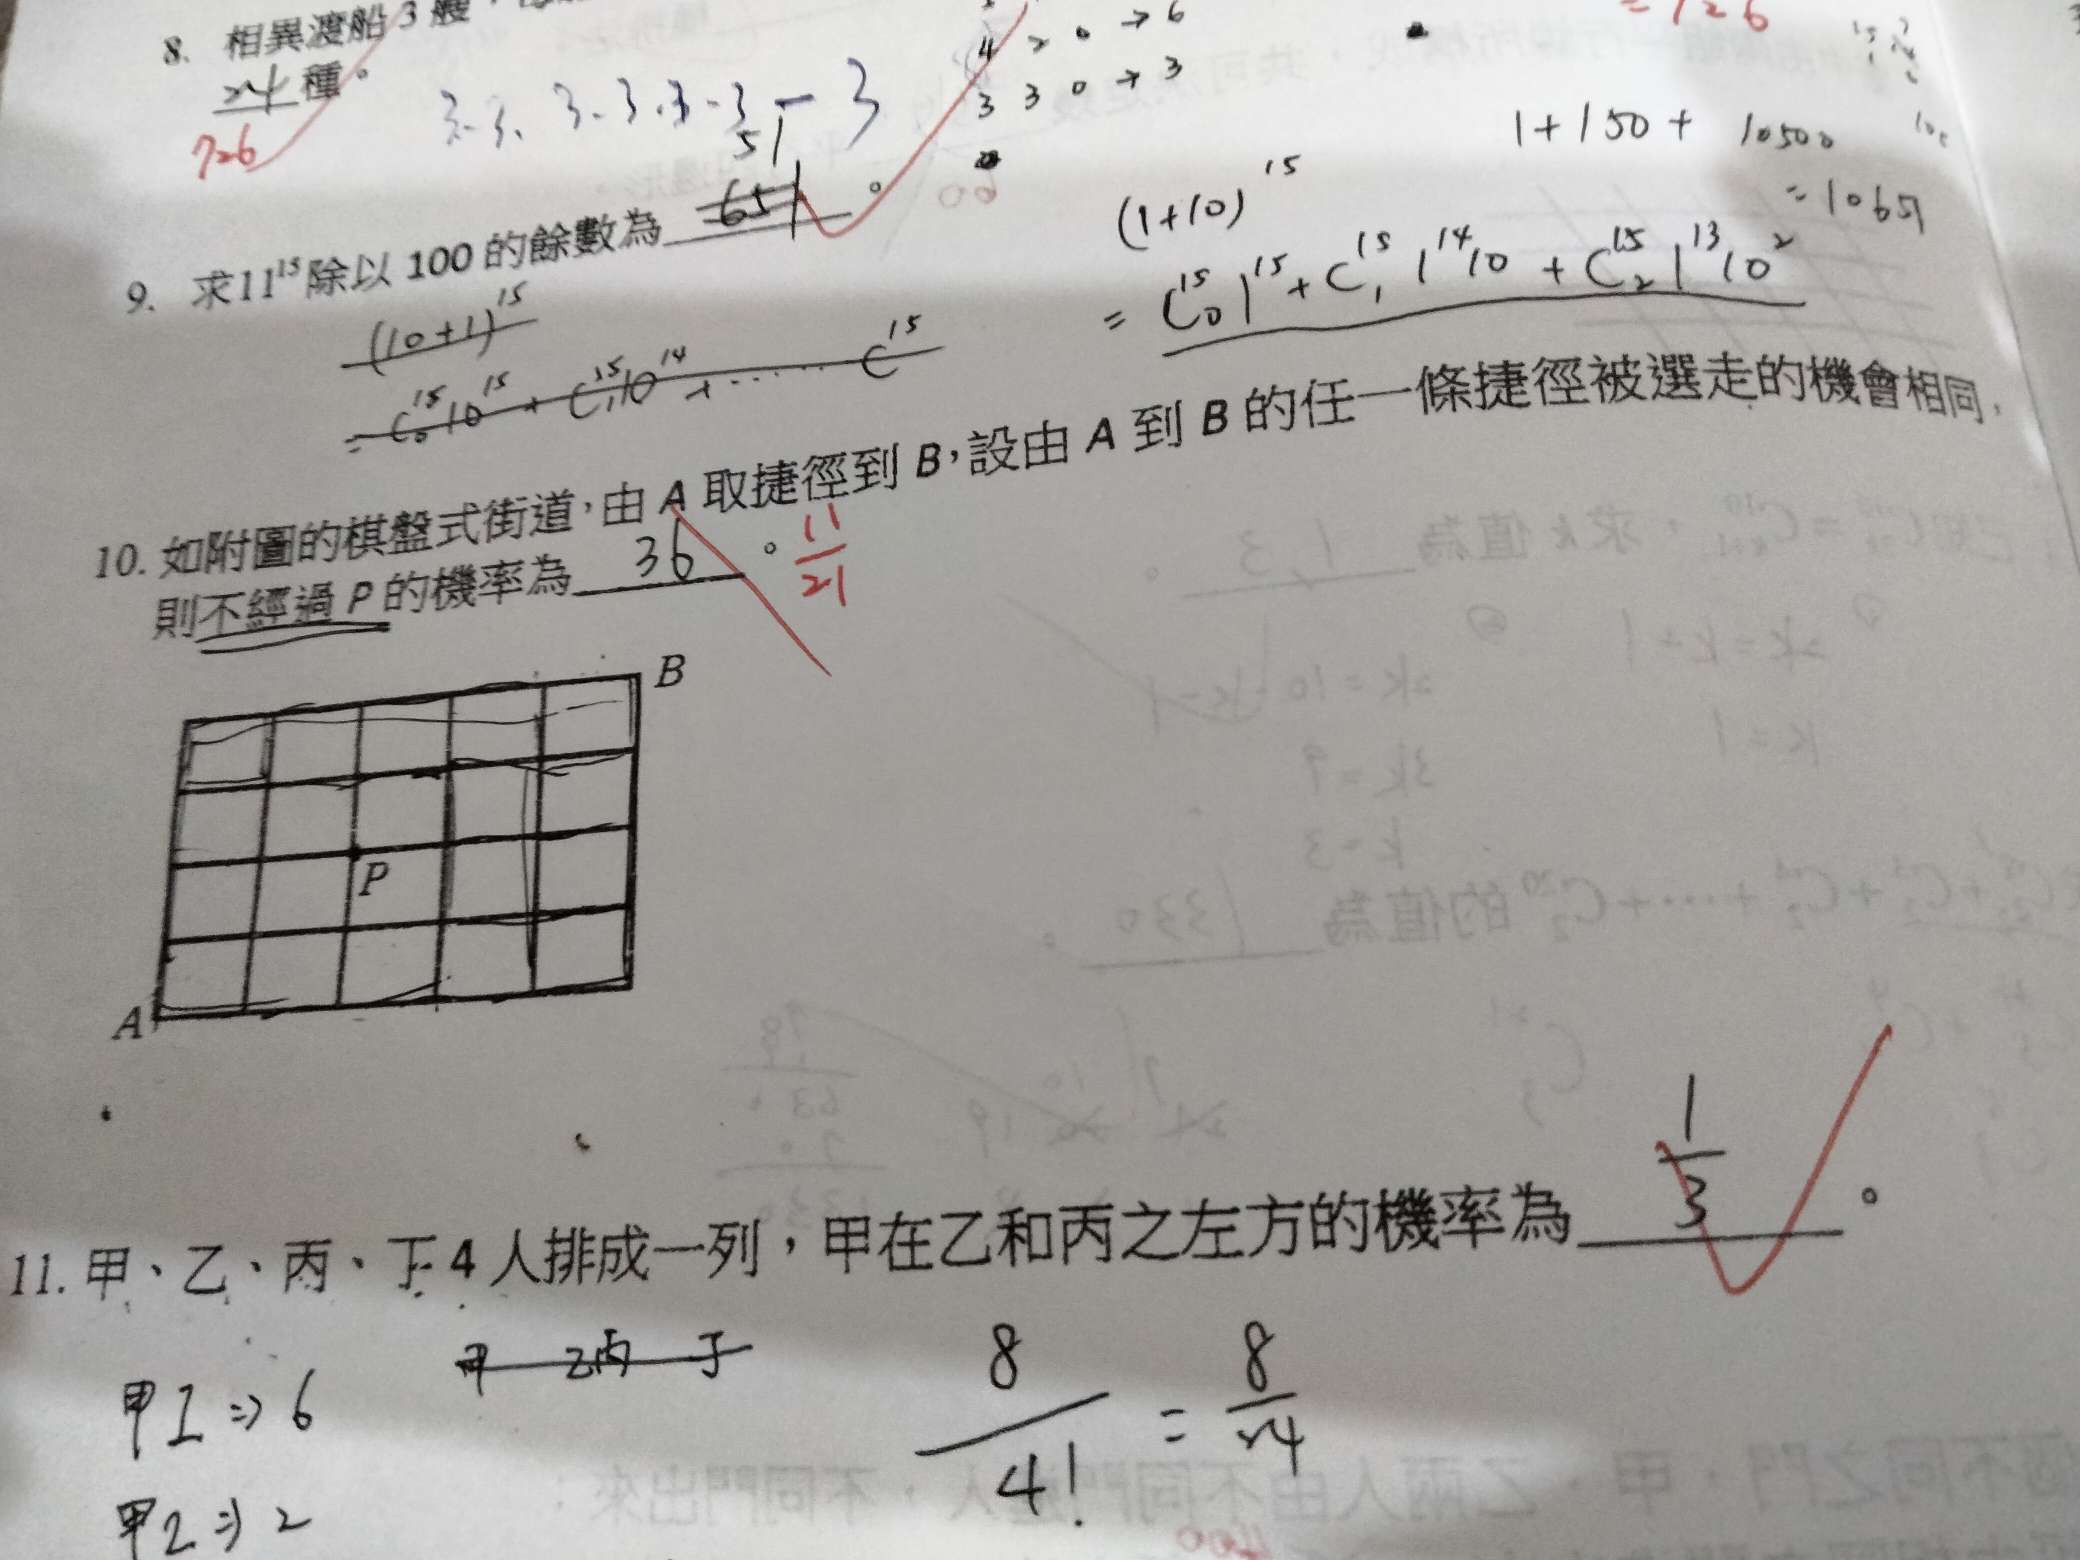 8. 相異渡船 3 艘,
24 種。
726
3·3·3·3·3·3 - 3
4 2 0 → 6
3 3 0 → 3
= 726
1+150+ 10500
= 10651
9. 求11¹⁵除以 100 的餘數為 651 51 。
(10+1)¹⁵
= C¹⁵₀10¹⁵ + C¹⁵₁10¹⁴ + ...... C¹⁵
(1+10)¹⁵
= C¹⁵₀1¹⁵ + C¹⁵₁1¹⁴10 + C¹⁵₂1¹³10²
10. 如附圖的棋盤式街道,由 A 取捷徑到 B,設由 A 到 B 的任一條捷徑被選走的機會相同,
則不經過 P 的機率為 36 。 11/21
B
P
A
11. 甲、乙、丙、丁 4 人排成一列,甲在乙和丙之左方的機率為 1/3 。
甲 乙丙 丁
甲1 ⇒ 6
甲2 ⇒ 2
8/4! = 8/24